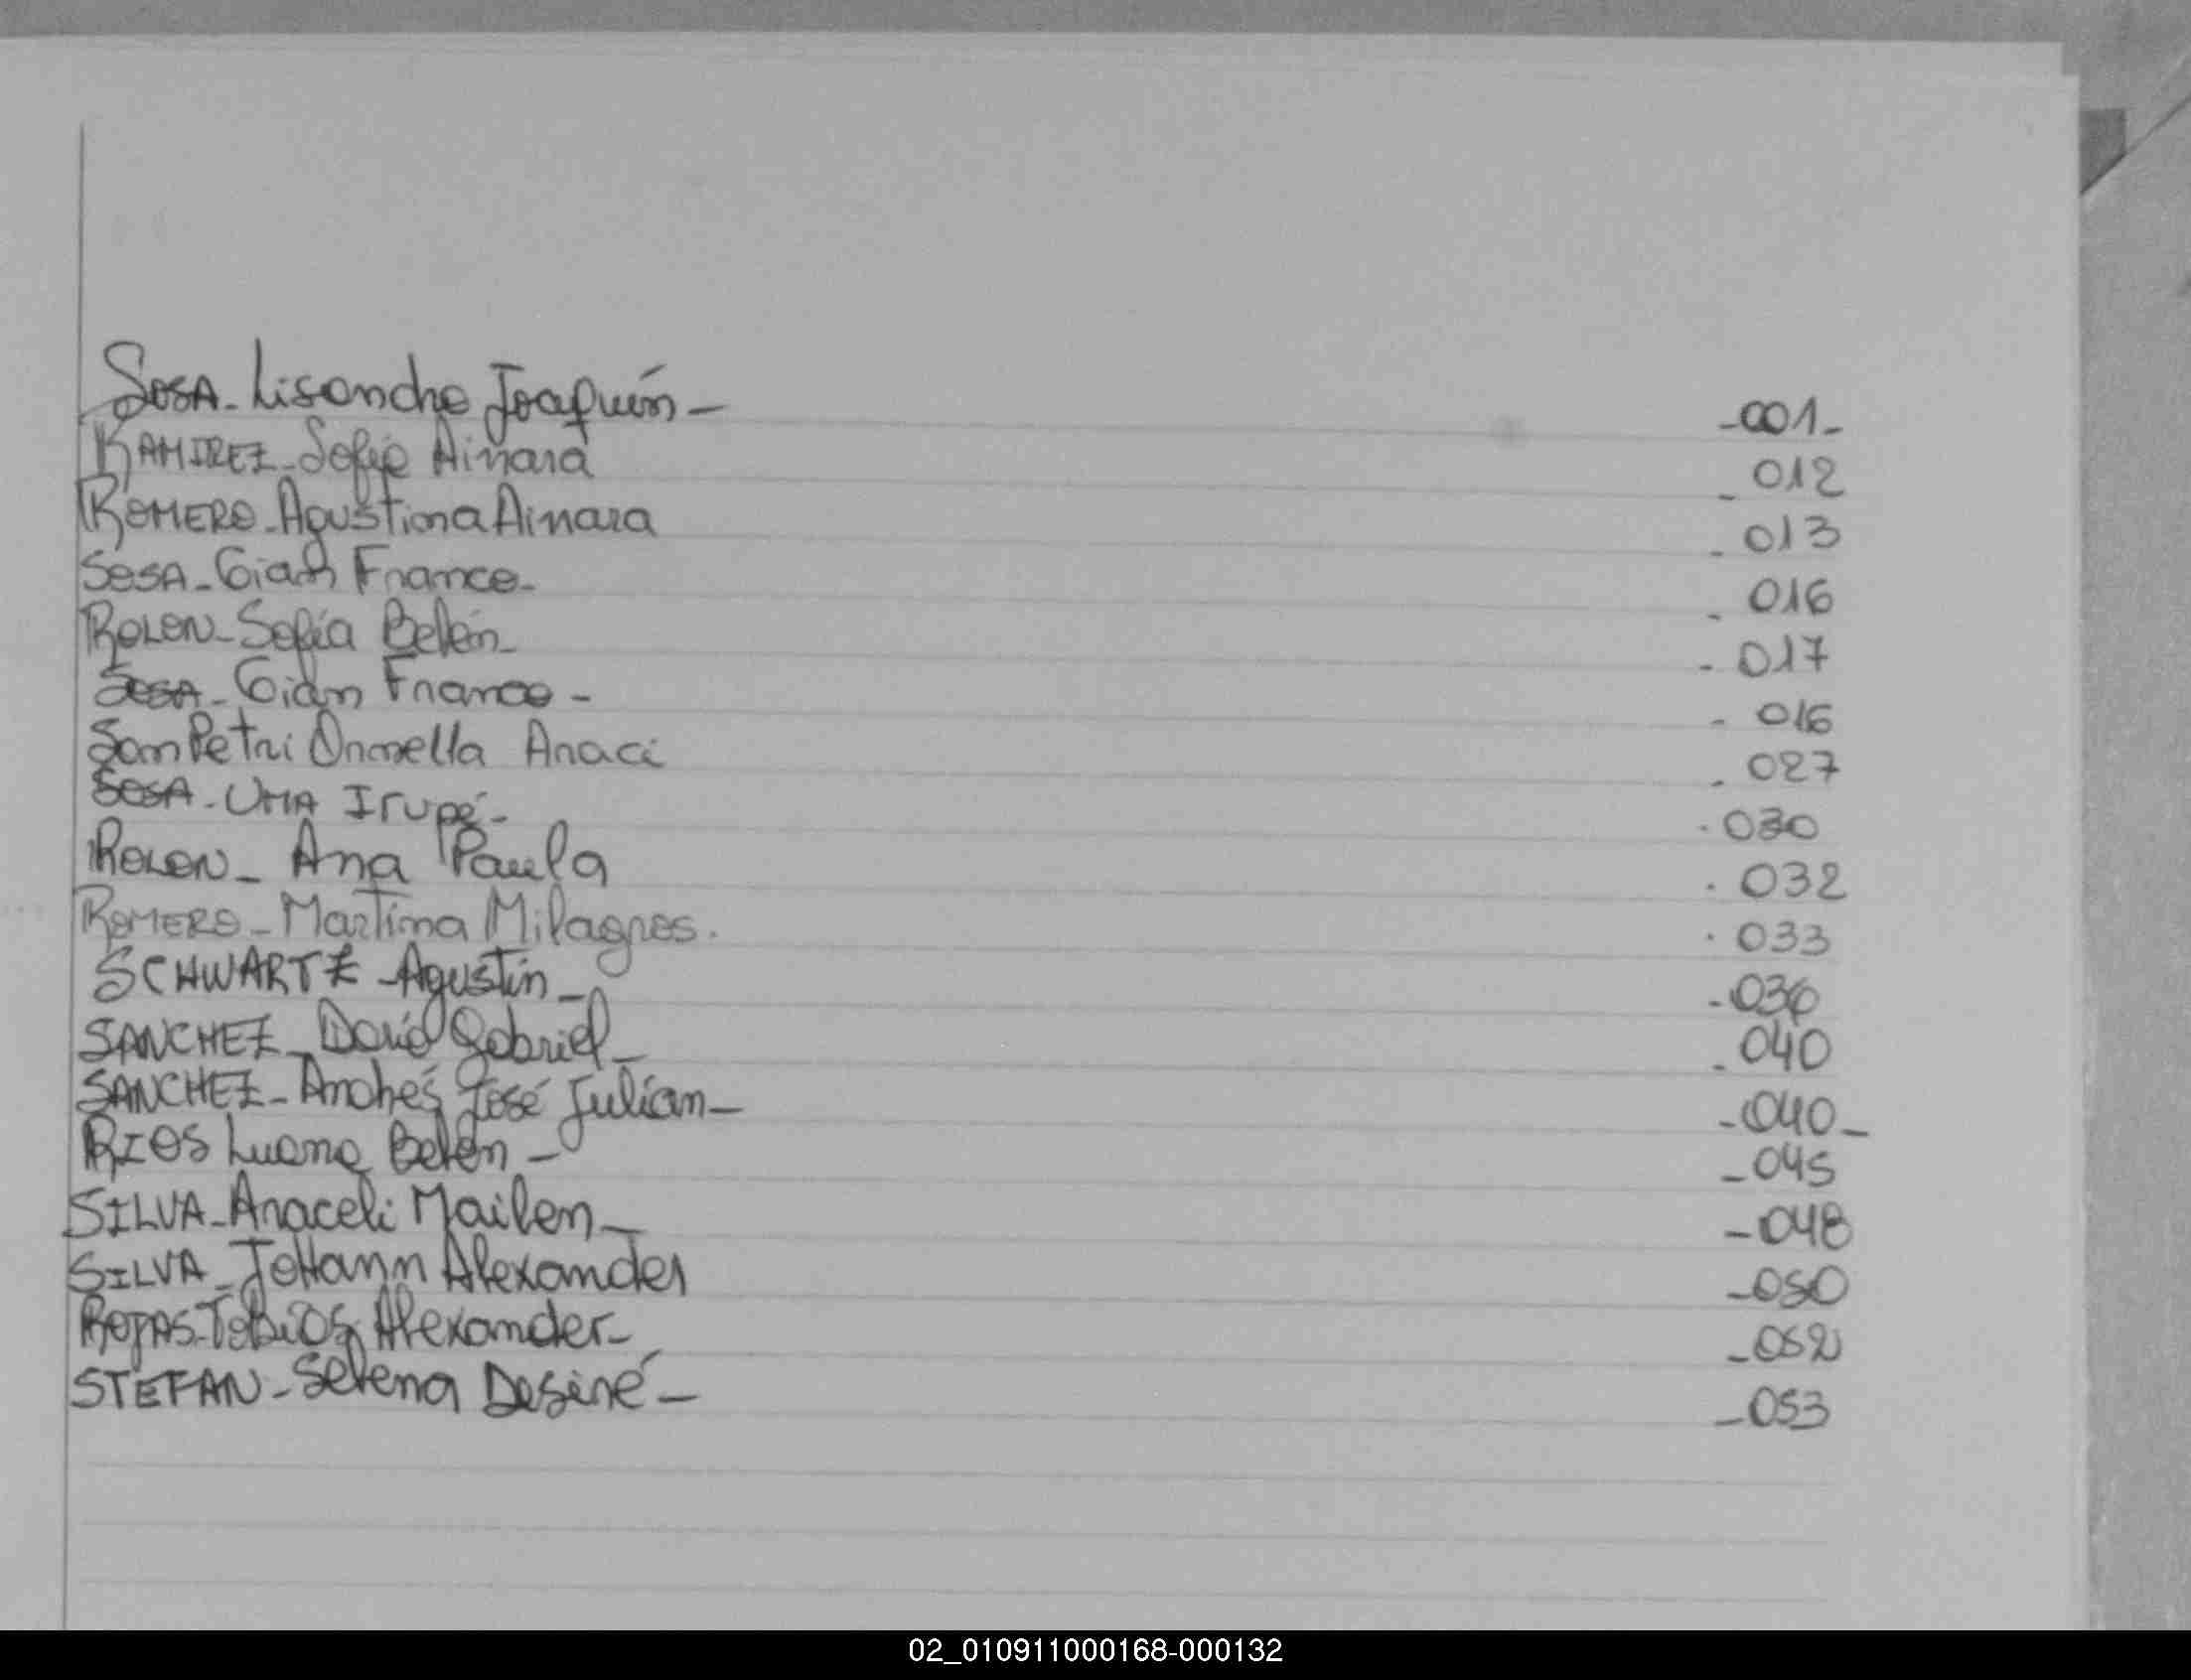 SOSA - Lisandro Joaquín - -001-
RAMIREZ - Sofía Ainara - 012
ROMERO - Agustina Ainara - 013
SOSA - Gian Franco - - 016
ROLON - Sofía Belén - - 017
SOSA - Gian Franco - - 016
SanPetri Ornella Araci - 027
SOSA - UMA Irupé - . 030
ROLON - Ana Paula . 032
ROMERO - Martina Milagros. . 033
SCHWARTZ - Agustín - - 036
SANCHEZ - David Gabriel - - 040
SANCHEZ - Andrés José Julián - - 040 -
RIOS Luana Belén - - 045
SILVA - Araceli Mailen - - 048
SILVA - JoHann Alexander - 050
ROJAS - Tobias Alexander - - 052
STEFAN - Selena Desiré - - 053
02_010911000168-000132